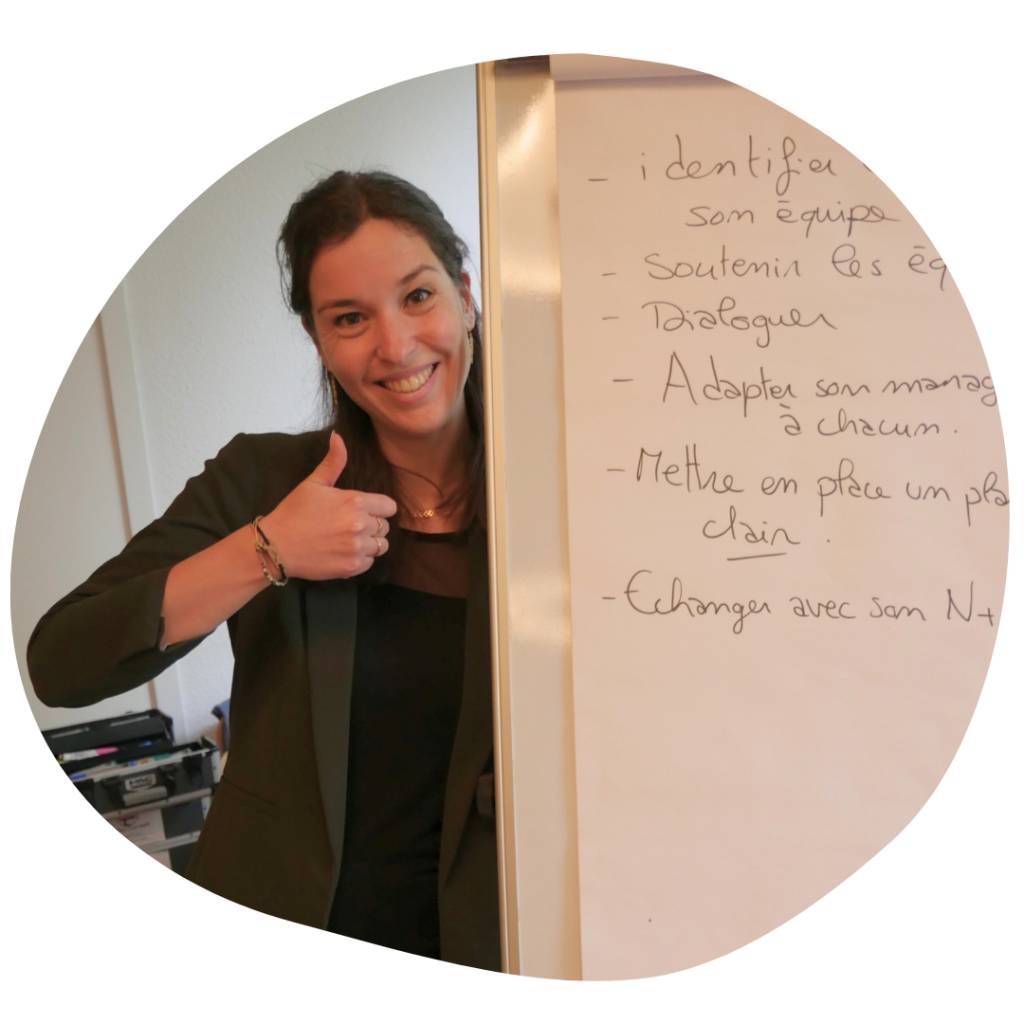 - identifier
son équipe
- Soutenir les éq
- Dialoguer
- Adapter son manag
à chacun.
- Mettre en place un pla
clair.
- Echanger avec son N+